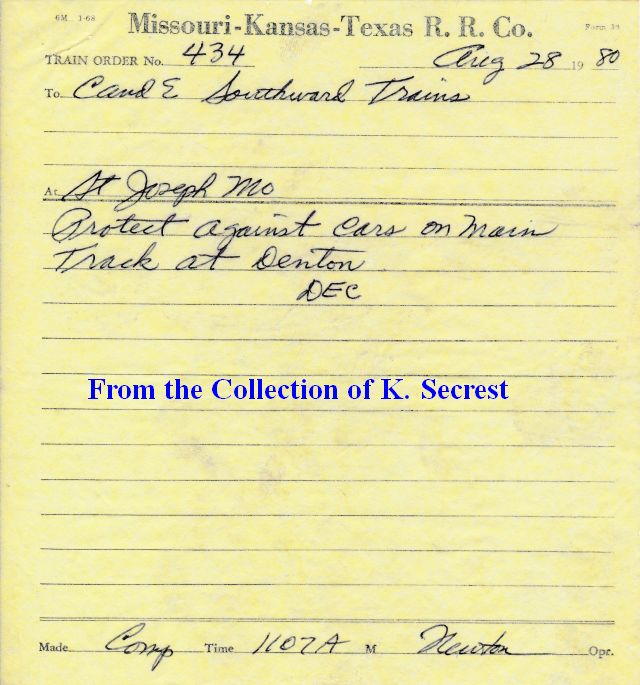 6M 1-68
Missouri-Kansas-Texas R. R. Co.
Form 31
TRAIN ORDER No. 434 Aug 28 19 80
To C and E Southward Trains
At St Joseph Mo
Protect against cars on Main
Track at Denton
DEC
From the Collection of K. Secrest
Made Comp Time 1107A M Newton Opr.